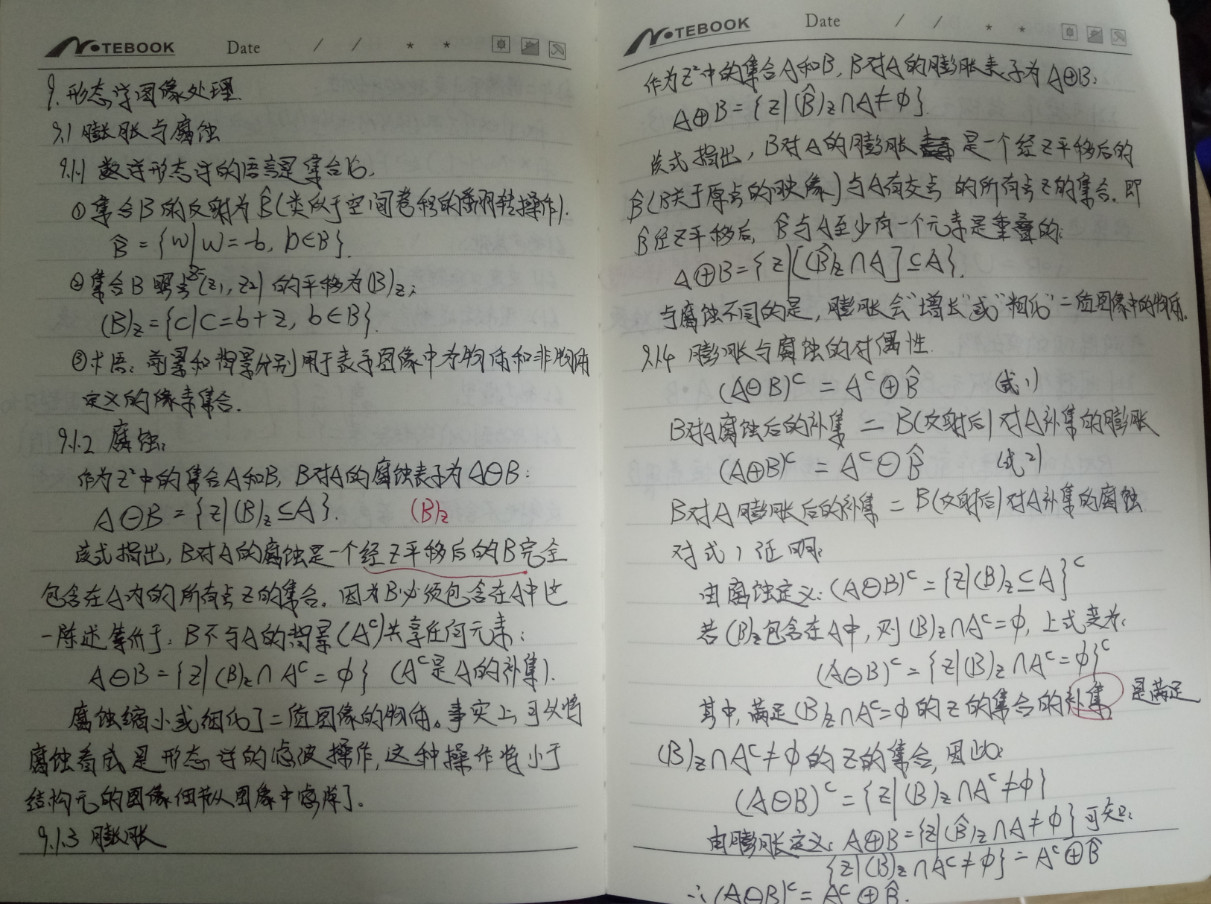 NOTEBOOK Date / / * *
9.形态学图像处理
9.1 膨胀与腐蚀
9.1.1 数学形态学的语言是集合论.
①集合B的反射为B̂(类似于空间卷积的翻转操作).
B̂ = {w|w=-b, b∈B}.
②集合B照点z=(z1, z2)的平移为(B)z;
(B)z={c|c=b+z, b∈B}.
③术语:前景和背景分别用于表示图像中为物体和非物体
定义的像素集合.
9.1.2 腐蚀:
作为Z²中的集合A和B, B对A的腐蚀表示为A⊖B:
A⊖B = {z|(B)z⊆A}. (B)z
该式指出,B对A的腐蚀是一个经z平移后的B完全
包含在A内的所有点z的集合.因为B必须包含在A中这
一陈述等价于:B不与A的背景(Aᶜ)共享任何元素:
A⊖B = {z|(B)z∩Aᶜ = ϕ} (Aᶜ是A的补集).
腐蚀缩小或细化了二值图像的物体。事实上,可以将
腐蚀看成是形态学的滤波操作,这种操作将小于
结构元的图像细节从图像中滤掉了。
9.1.3 膨胀
NOTEBOOK Date / / * *
作为Z²中的集合A和B, B对A的膨胀表示为A⊕B:
A⊕B = {z|(B̂)z∩A≠ϕ}.
该式指出,B对A的膨胀是一个经z平移后的
B̂(B关于原点的映像)与A有交点的所有点z的集合.即
B̂经z平移后, B̂与A至少有一个元素是重叠的:
A⊕B={z|[(B̂)z∩A]⊆A}.
与腐蚀不同的是,膨胀会"增长"或"粗化"二值图像中的物体.
9.1.4 膨胀与腐蚀的对偶性.
(A⊖B)ᶜ = Aᶜ⊕B̂ (式1)
B对A腐蚀后的补集 = B(反射后)对A补集的膨胀
(A⊕B)ᶜ = Aᶜ⊖B̂ (式2)
B对A膨胀后的补集 = B(反射后)对A补集的腐蚀
对式1证明:
由腐蚀定义:(A⊖B)ᶜ = {z|(B)z⊆A}ᶜ
若(B)z包含在A中,则(B)z∩Aᶜ=ϕ,上式变为:
(A⊖B)ᶜ = {z|(B)z∩Aᶜ=ϕ}ᶜ
其中,满足(B)z∩Aᶜ=ϕ的z的集合的补集,是满足
(B)z∩Aᶜ≠ϕ的z的集合,因此:
(A⊖B)ᶜ={z|(B)z∩Aᶜ≠ϕ}
由膨胀定义: A⊕B={z|(B̂)z∩A≠ϕ}可知:
{z|(B)z∩Aᶜ≠ϕ} = Aᶜ⊕B̂
∴(A⊖B)ᶜ = Aᶜ⊕B̂.